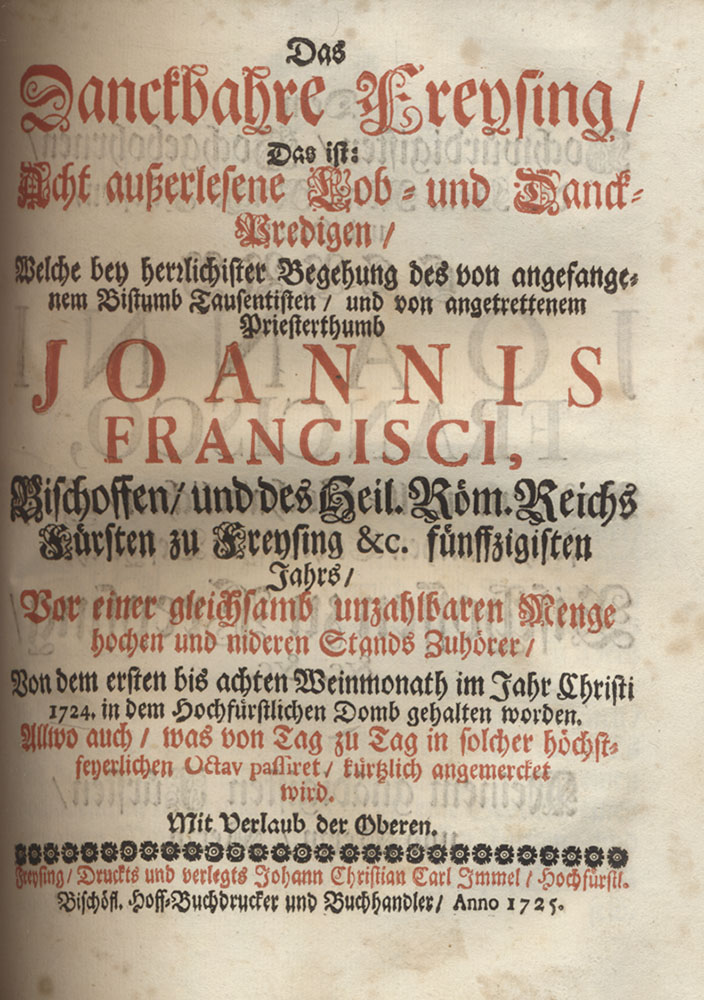 Das
Danckbahre Freysing/
Das ist:
Acht außerlesene Lob- und Danck-
Predigen/
Welche bey herrlichister Begehung des von angefange-
nem Bistumb Tausentisten/ und von angetrettenem
Priesterthumb
JOANNIS
FRANCISCI,
Bischoffen/ und des Heil. Röm. Reichs
Fürsten zu Freysing &c. fünffzigisten
Jahrs/
Vor einer gleichsamb unzahlbaren Menge
hochen und nideren Stands Zuhörer/
Von dem ersten bis achten Weinmonath im Jahr Christi
1724. in dem Hochfürstlichen Domb gehalten worden.
Allwo auch/ was von Tag zu Tag in solcher höchst-
feyerlichen Octav passiret/ kürtzlich angemercket
wird.
Mit Verlaub der Oberen.
Freysing/ Druckts und verlegts Johann Christian Carl Immel/ Hochfürstl.
Bischöfl. Hoff-Buchdrucker und Buchhandler/ Anno 1725.